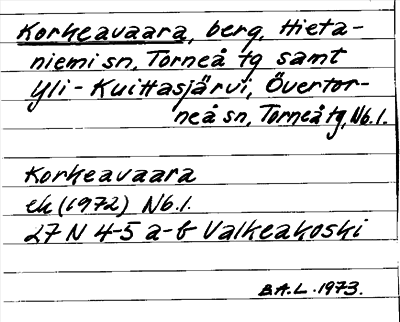 Korkeavaara, berg, Hieta-
niemi sn, Torneå tg samt
Yli-Kuittasjärvi, Övertor-
neå sn, Torneå tg, Nb.l.
Korkeavaara
ek (1972) Nb.l.
27 N 4-5 a-b Valkeakoski
B.A.L. 1973.